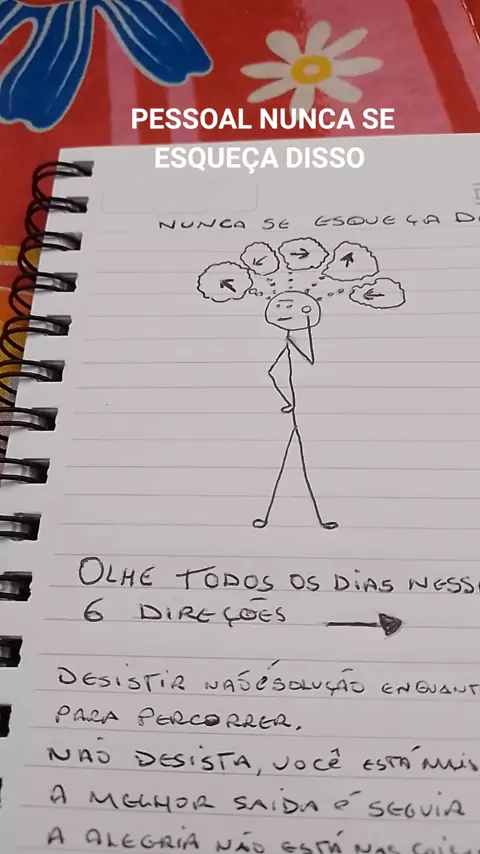 PESSOAL NUNCA SE
ESQUEÇA DISSO
NUNCA SE ESQUEÇA
OLHE TODOS OS DIAS
6 DIREÇÕES
DESISTIR NAÕ É SOLUÇÃO
PARA PERCORRER.
NAÕ DESISTA, VOCÊ ESTÁ MAIS
A MELHOR SAIDA É SEGUIR
A ALEGRIA NÃO ESTÁ NAS